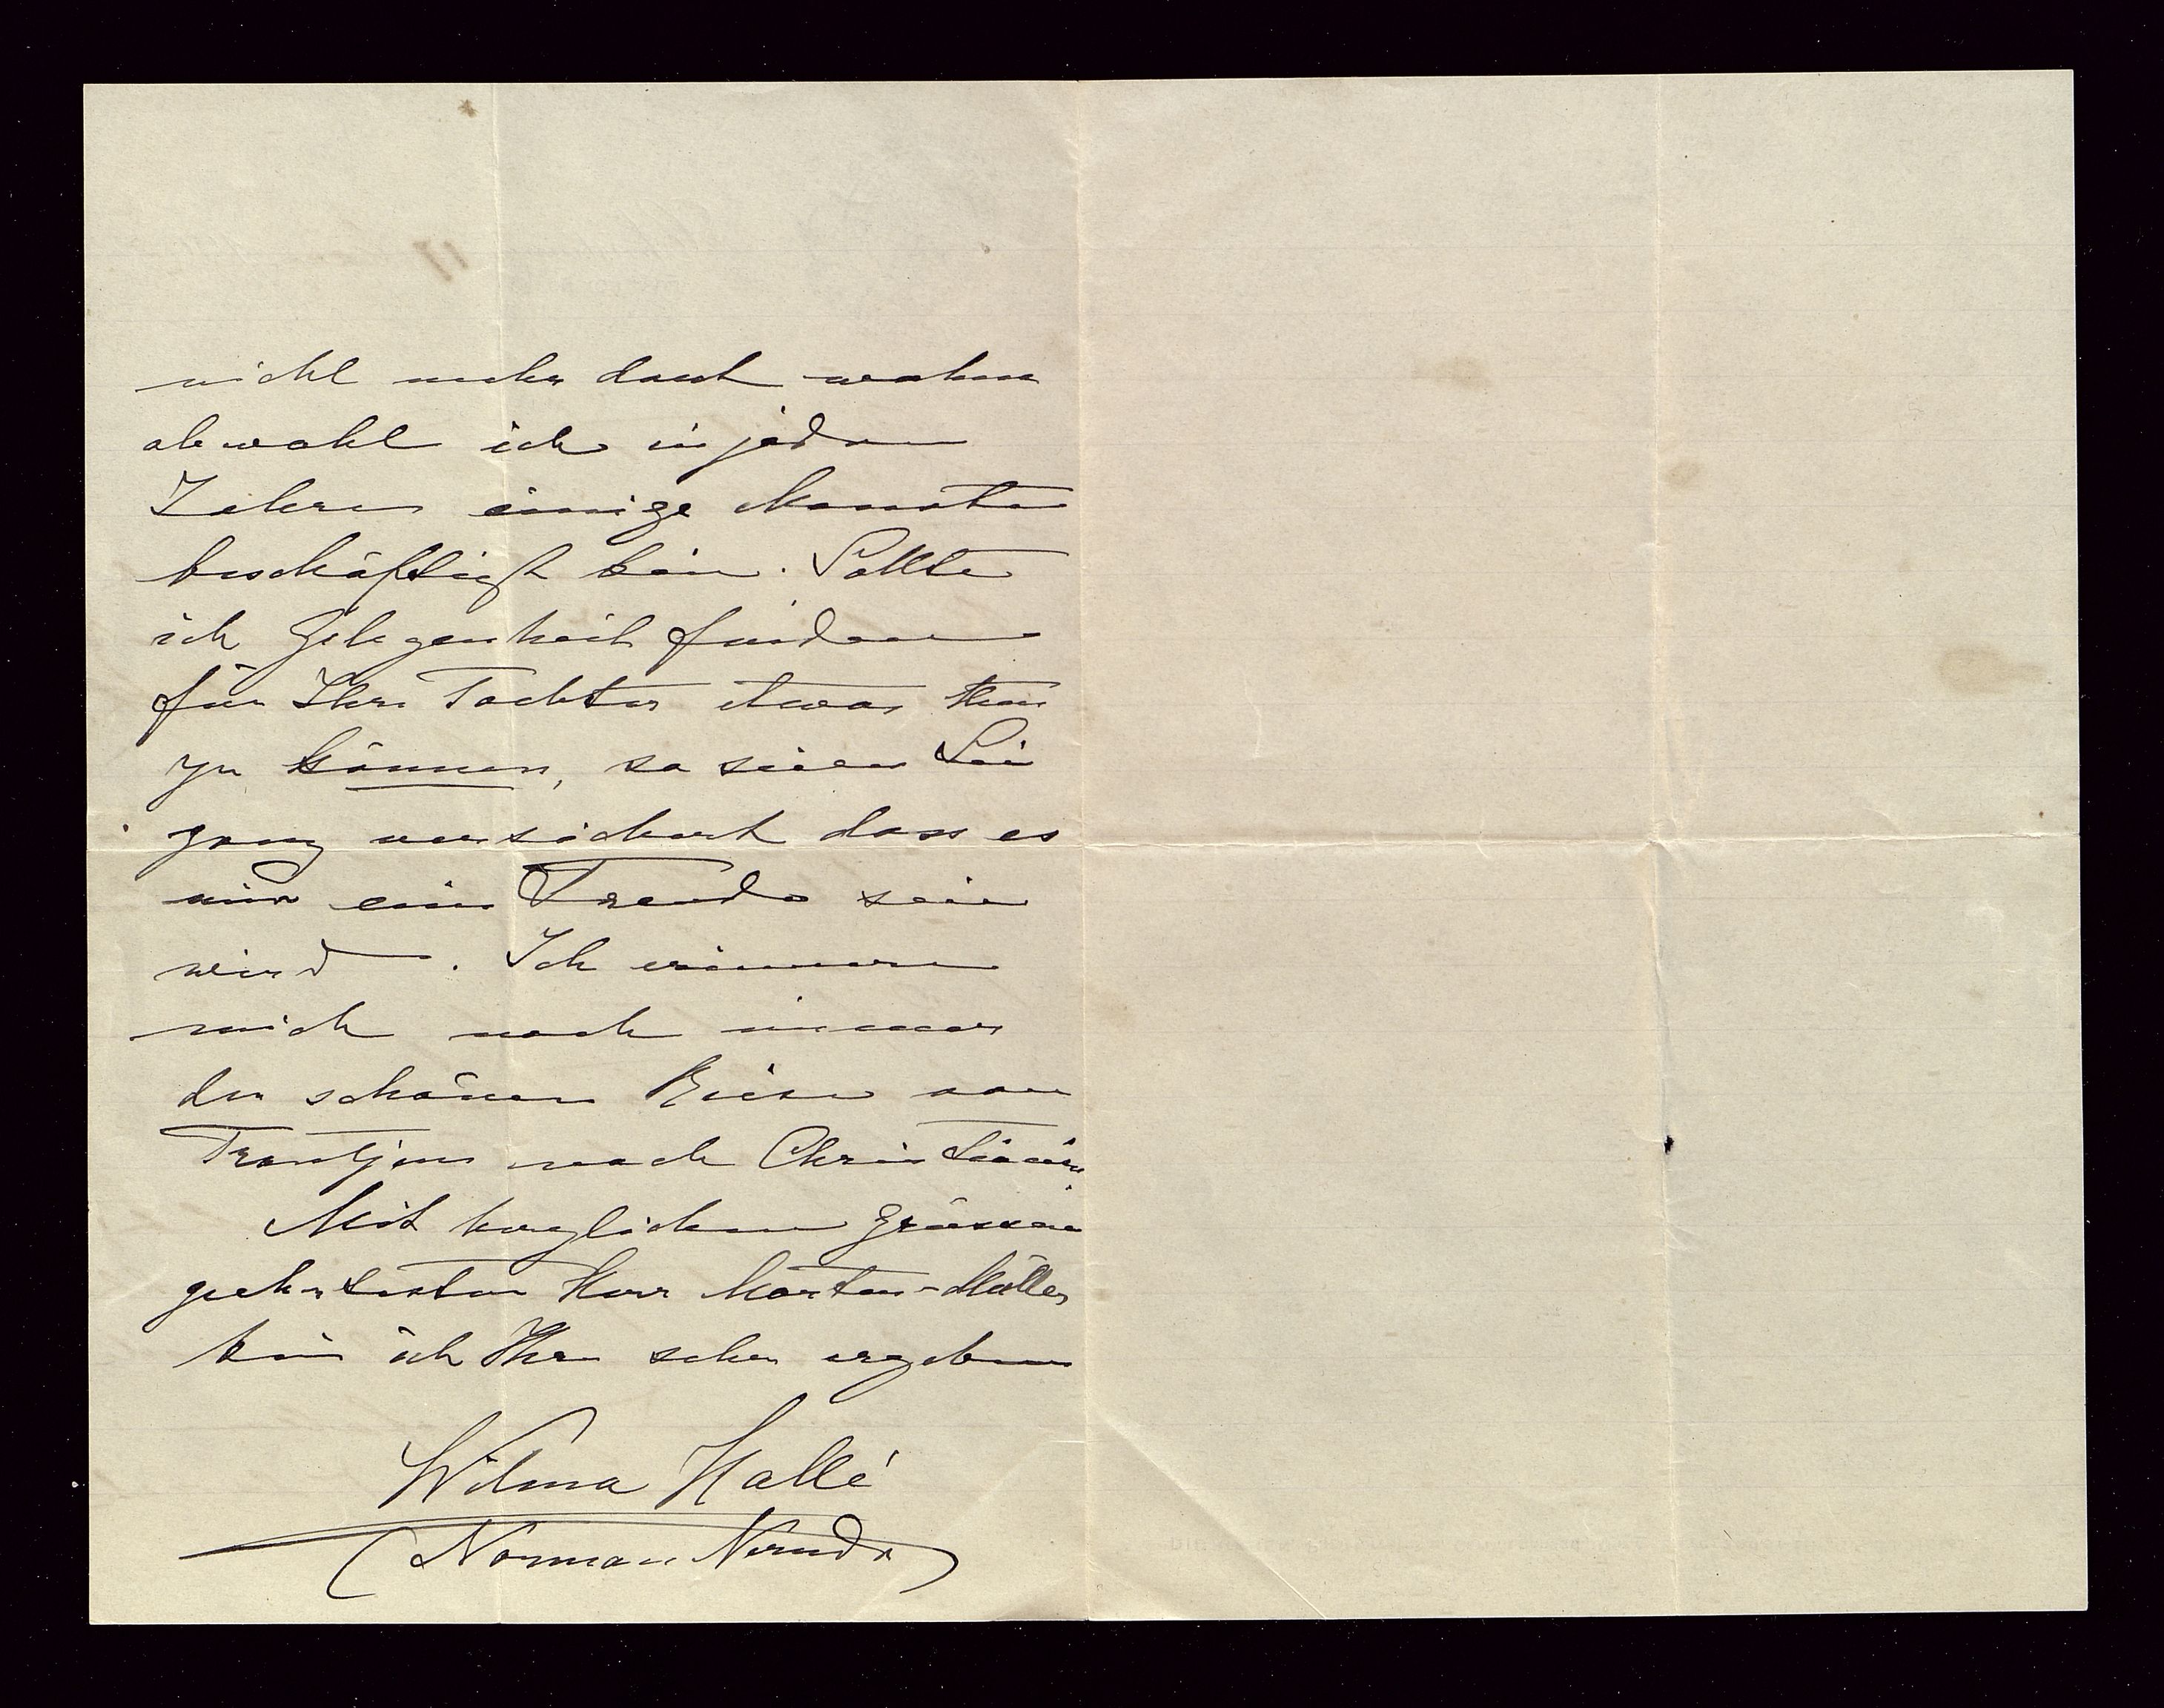 nicht mehr dort wohne
obwohl ich in jedem
Jahre einige Monate
beschäftigt bin. Sollte
ich Gelegenheit finden
für Ihre Tochter etwas thun
zu können, so seien Sie
ganz versichert dass es
mir eine Freude sein
wird. Ich erinnere
mich noch immer
der schönen Reise von
Trontjem nach Christiania.
Mit herzlichen Grüssen
geehrtester Herr Morten-Müller
bin ich Ihre sehr ergebene
Wilma Hallé
(Norman Neruda)